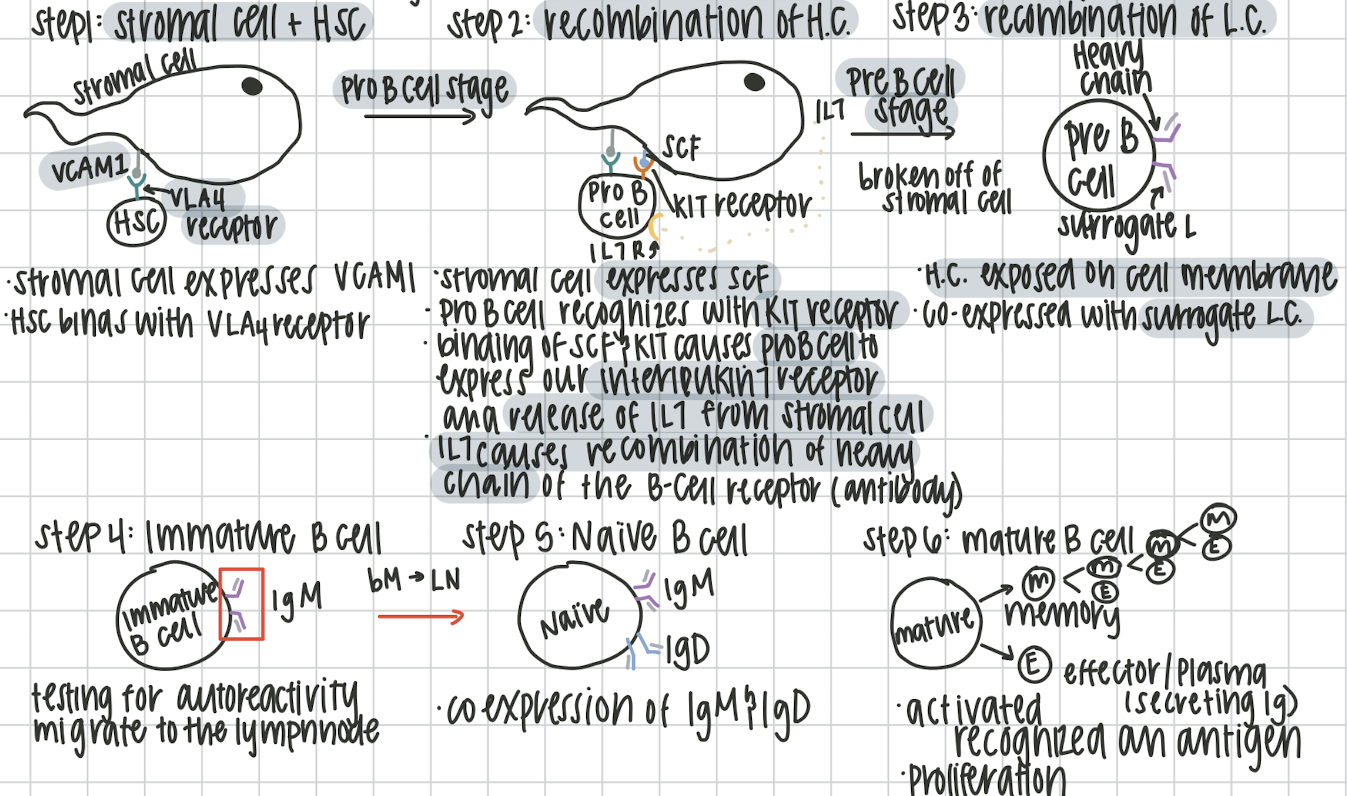 step1: stromal cell + HSC
stromal cell
VCAM1
VLA4
receptor
HSC
·stromal cell expresses VCAM1
·HSC binds with VLA4 receptor
Pro B cell stage
step 2: recombination of H.C.
SCF
KIT receptor
Pro B
cell
IL7R
IL7
·stromal cell expresses SCF
·Pro B cell recognizes with KIT receptor
·binding of SCF & KIT causes pro B cell to
express our interleukin 7 receptor
and release of IL7 from stromal cell
·IL7 causes recombination of heavy
chain of the B-Cell receptor (antibody)
Pre B cell
stage
broken off of
stromal cell
step 3: recombination of L.C.
Heavy
chain
Pre B
cell
surrogate L
·H.C. exposed on cell membrane
·co-expressed with surrogate L.C.
step 4: Immature B cell
Immature
B cell
IgM
testing for autoreactivity
migrate to the lymphnode
bM → LN
step 5: Naïve B cell
Naïve
IgM
IgD
·coexpression of IgM & IgD
step 6: mature B cell
mature
M
M
M
M
E
E
E
memory
E
effector/Plasma
(secreting Ig)
·activated
recognized an antigen
·Proliferation